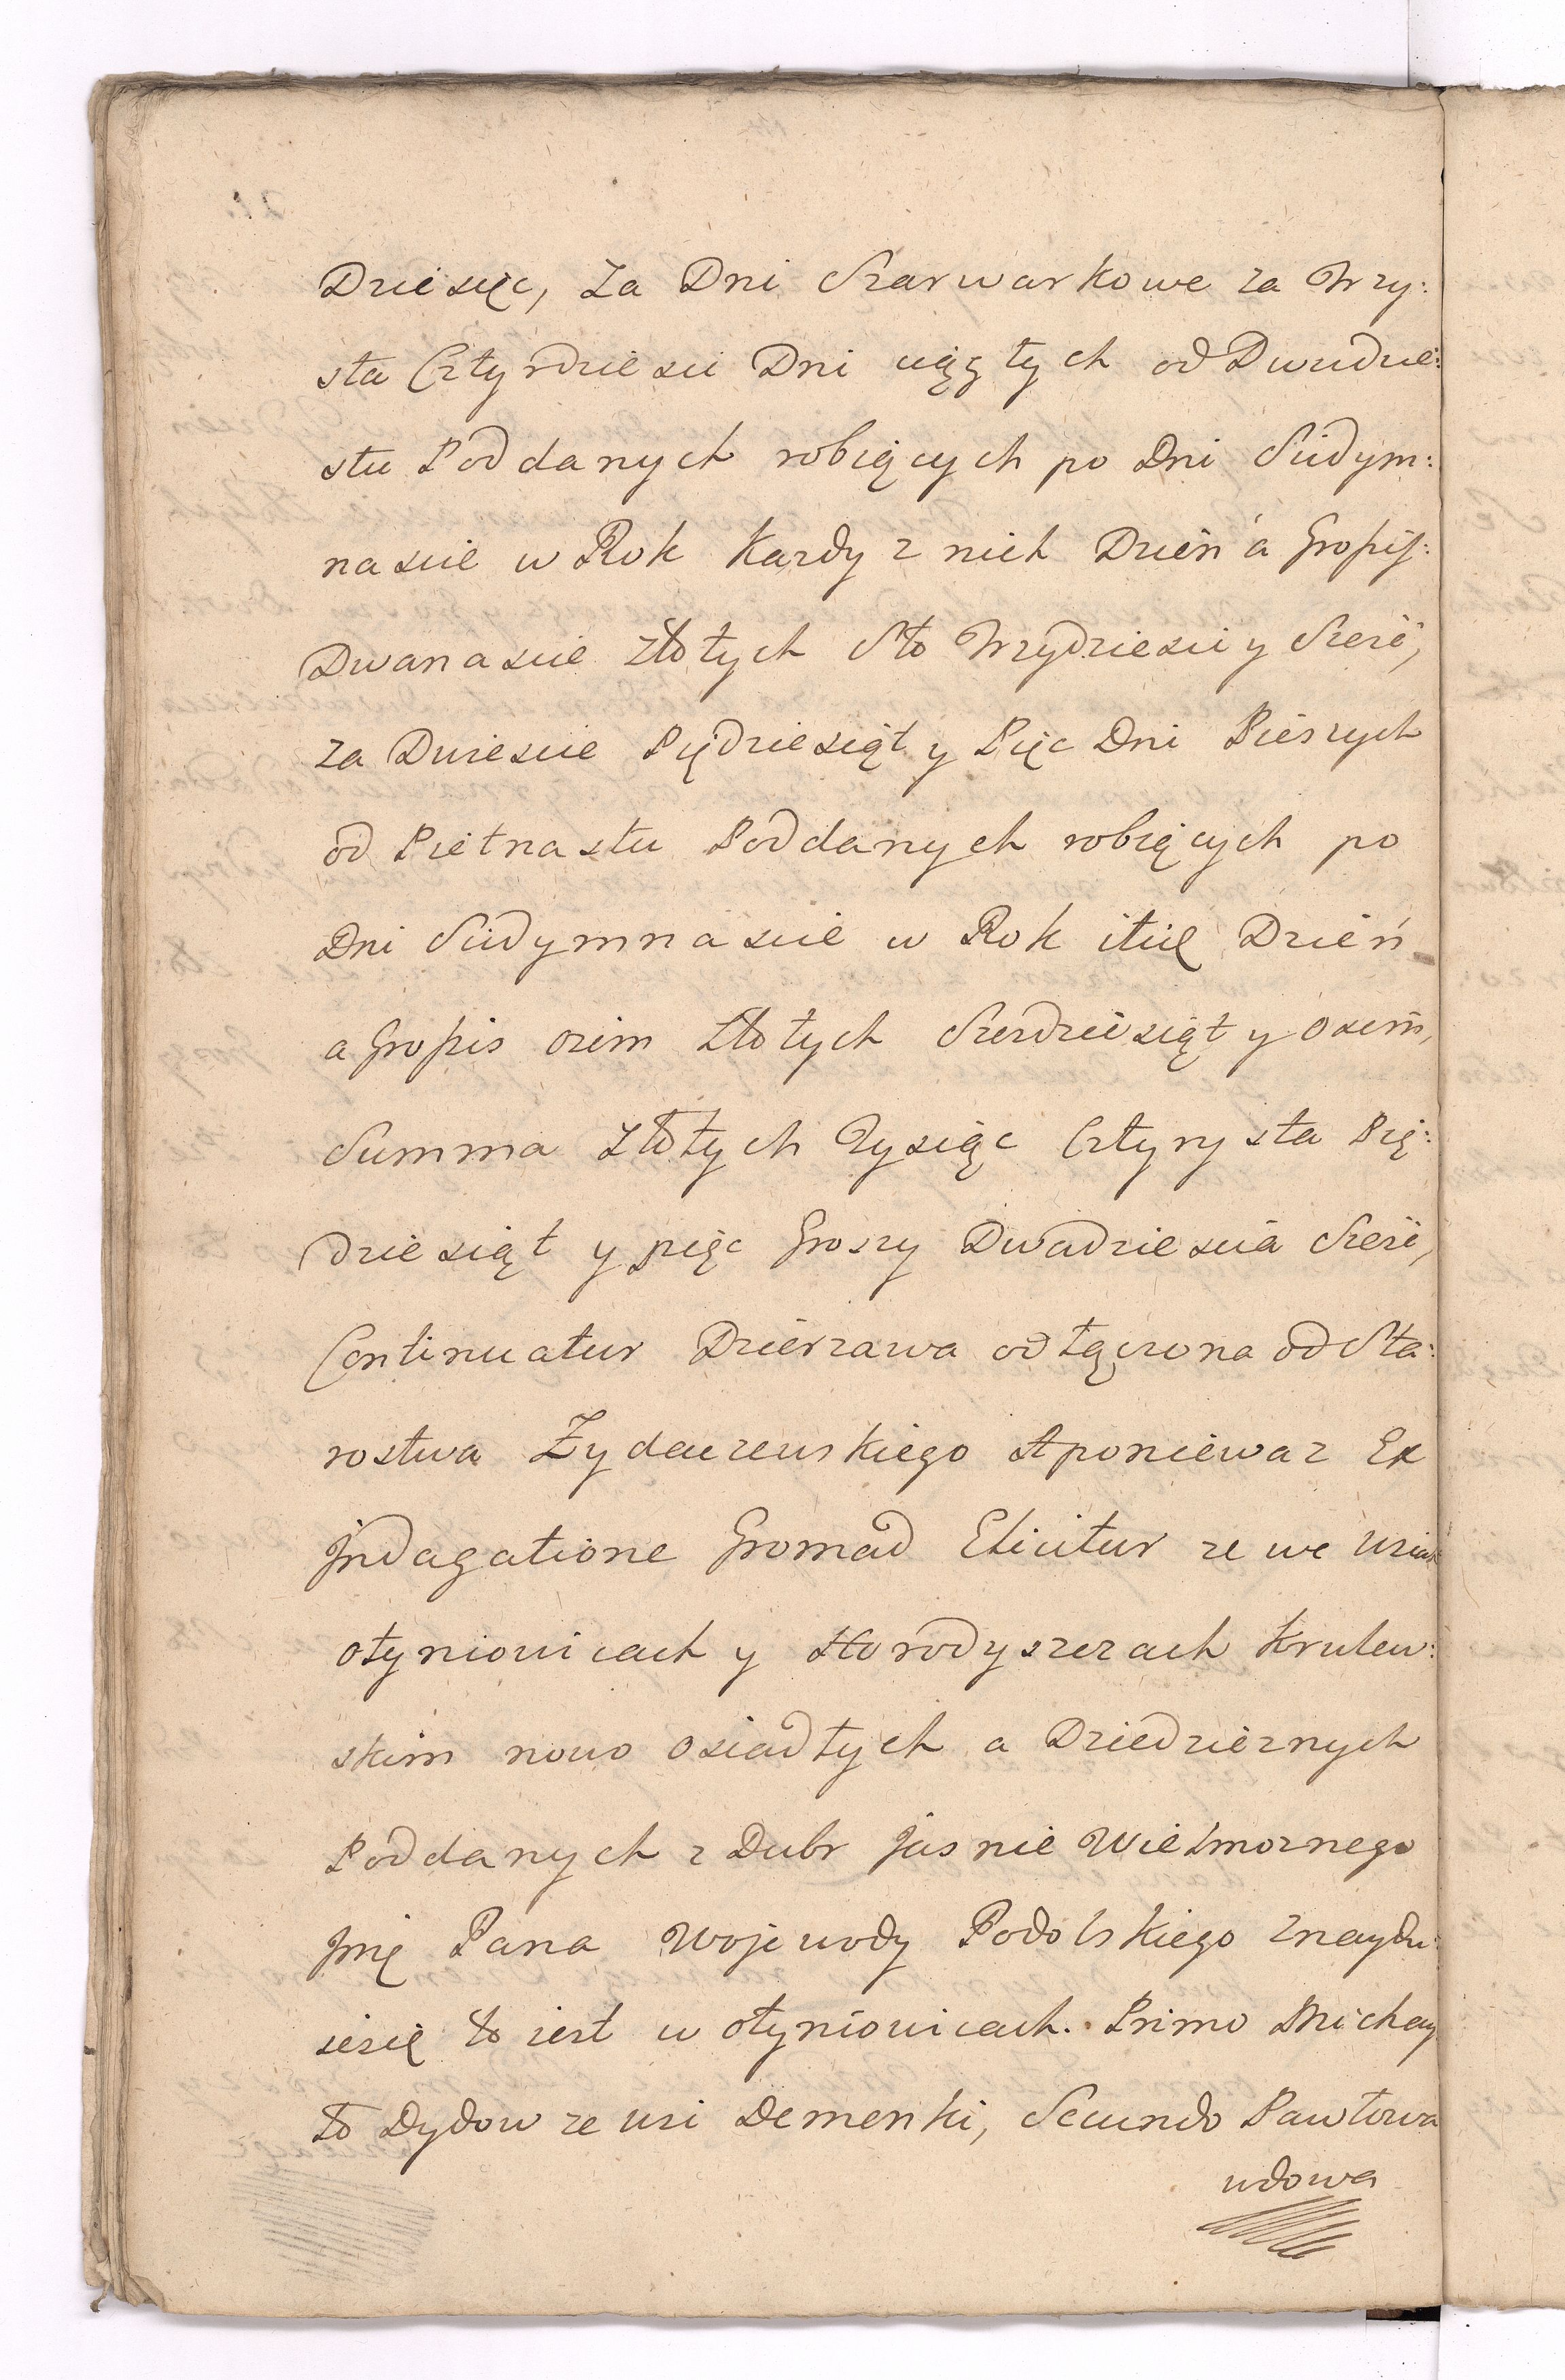 Dziesięc, Za Dni Szarwarkowe za Trzy:
sta Cztyrdziesci Dni ciągłych od Dwudzie:
stu Poddanych robiących po Dni Siedym:
nascie w Rok Kazdy z nich Dzień á Gropis:
Dwanascie złotych Sto Trzydziesci y Szesc,
za Dwiescie Piędziesiąt y Pięc Dni Pieszych
od Pietnastu Poddanych robiących po
Dni Siedymnascie w Rok itiię Dzień
a Gropis ozim złotych Szesdziesiąt y Osim,
Summa złotych Tysiąc Cztyrysta Pię:
dziesiąt y pięc Groszy Dwadziescia Szesc,
Continuatur Dzierzawa odłączona od Sta:
rostwa Zydaczewskiego A poniewaz Ex
jndagatione Gromad Elicitur ze we wsiach
Otyniowicach y Horodyszczach Krulew:
skim nowo osiadłych a Dziedzicznych
Poddanych z Dubr Jasnie Wielmoznego
Jmę Pana Wojewody Podolskiego znaydu:
iesię to iest w Otyniowicach. Primo Michay
ło Dydow ze wsi Demenki, Secundo Pawłowa
wdowa